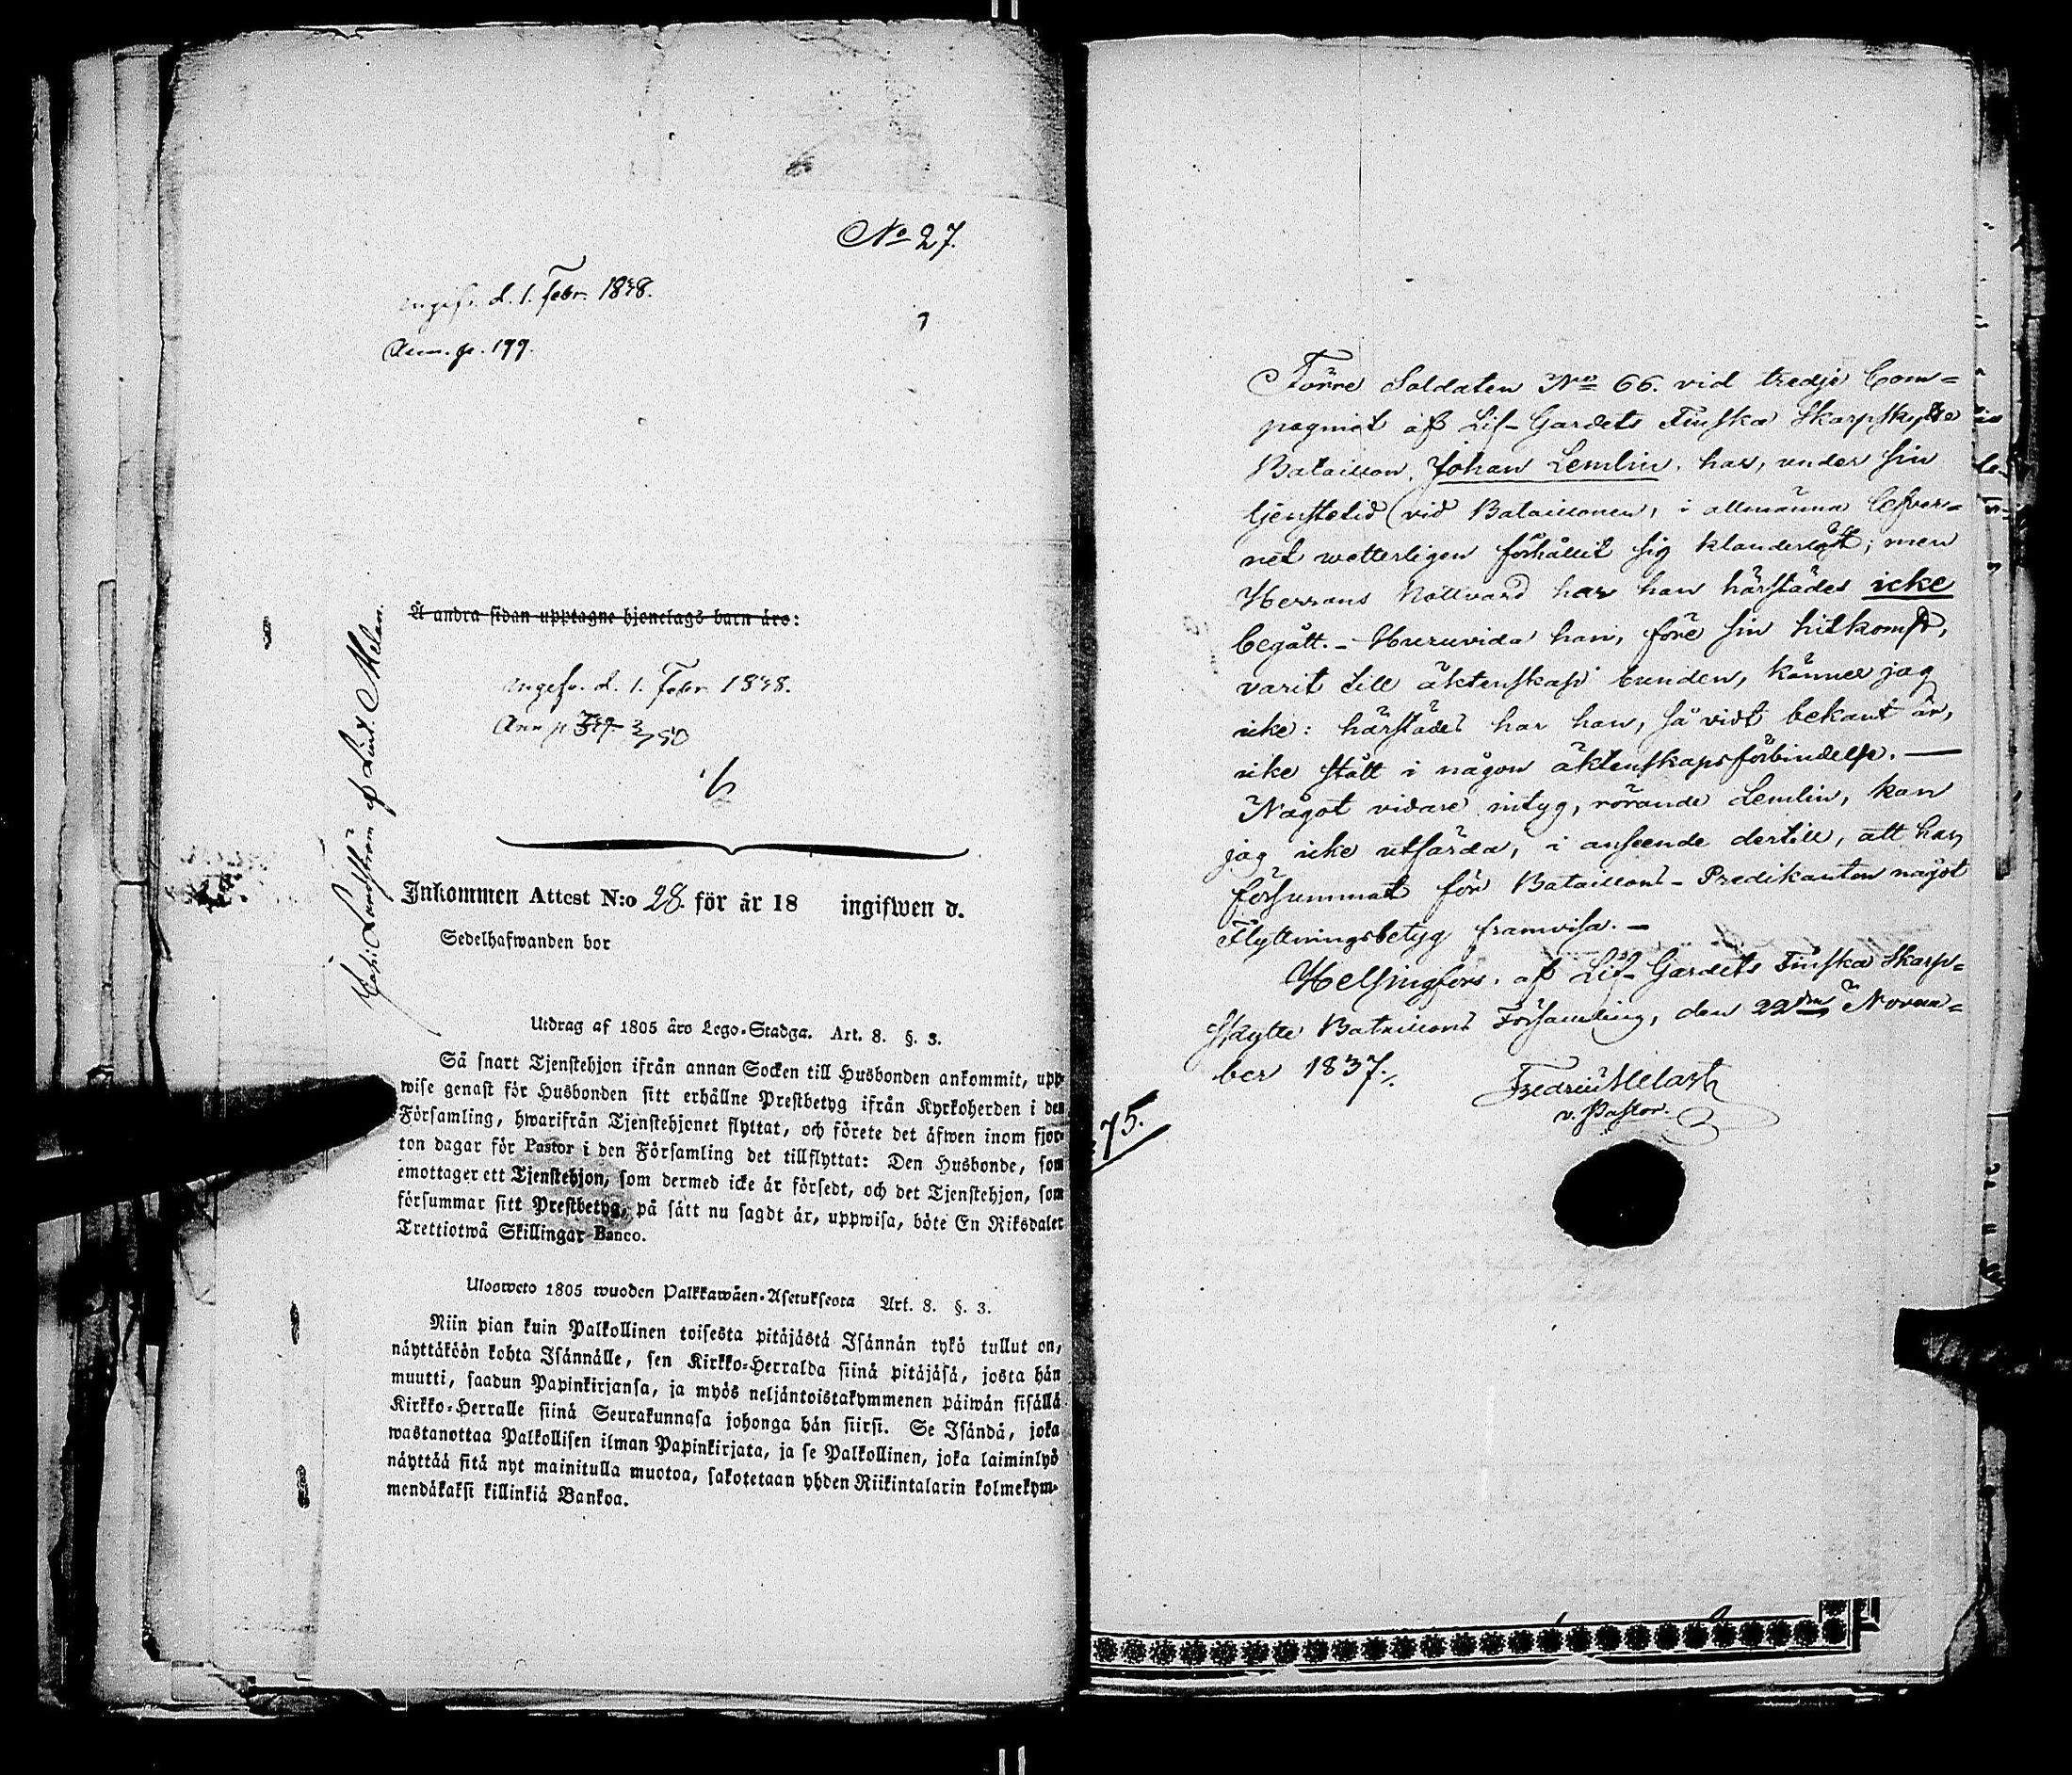 No 27.
d. 1. Febr. 1838.
Ann. p. 199.
Å andra sidan upptagne hjonelags barn äro:
d. 1. Febr. 1838.
Ann p
Inkommen Attest N:o 28. för år 18 ingifwen d.
Sedelhafwanden bor
Utdrag af 1805 års Lego-Stadga. Art. 8. §. 3.
Så snart Tjenstehjon ifrån annan Socken till Husbonden ankommit, upp-
wise genast för Husbonden sitt erhållne Prestbetyg ifrån Kyrkoherden i den
Församling, hwarifrån Tjenstehjonet flyttat, och förete det äfwen inom fjor-
ton dagar för Pastor i den Församling det tillflyttat: Den Husbonde, som
emottager ett Tjenstehjon, som dermed icke är försedt, och det Tjenstehjon, som
försummar sitt Prestbetyg, på sätt nu sagdt är, uppwisa, böte En Riksdaler
Trettiotwå Skillingar Banco.
Ulosweto 1805 wuoden Palkkawäen-Asetuksesta Art. 8. §. 3.
Niin pian kuin Palkollinen toisesta pitäjästä Isännän tykö tullut on,
näyttäköön kohta Isännälle, sen Kirkko-Herralda siinä pitäjäsä, josta hän
muutti, saadun Papinkirjansa, ja myös neljäntoistakymmenen päiwän sisällä
Kirkko-Herralle siinä Seurakunnasa johonga hän siirsi. Se Isändä, joka
wastanottaa Palkollisen ilman Papinkirjata, ja se Palkollinen, joka laiminlyö
näyttää sitä nyt mainitulla muotoa, sakotetaan yhden Riikintalarin kolmekym-
mendäkaksi killinkiä Bankoa.
Förre Soldaten No 66. vid tredje Com=
pagniet af Lif-Gardets Finska Skarpskytte
Bataillon, Johan Lemlin, har, under sin
tjenstetid vid Bataillonen, i allmänna lefver=
net wetterligen förhållit sig klanderlöst; men
Herrans Nattvard har han härstädes icke
begått. - Huruvida han, före sin hitkomst,
varit till äktenskap bunden, känner jag
icke: härstädes har han, så vidt bekant är,
icke stått i någon äktenskapsförbindelse. —
Något vidare intyg, rörande Lemlin, kan
jag icke utfärda, i anseende dertill, att han
försummat för Bataillons-Predikanten något
Flyttningsbetyg framvisa. -
Helsingfors, af Lif-Gardets Finska Skarp=
skytte Bataillons Församling, den 22dra Novem=
ber 1837.
Fredric
v. Pastor.
75.